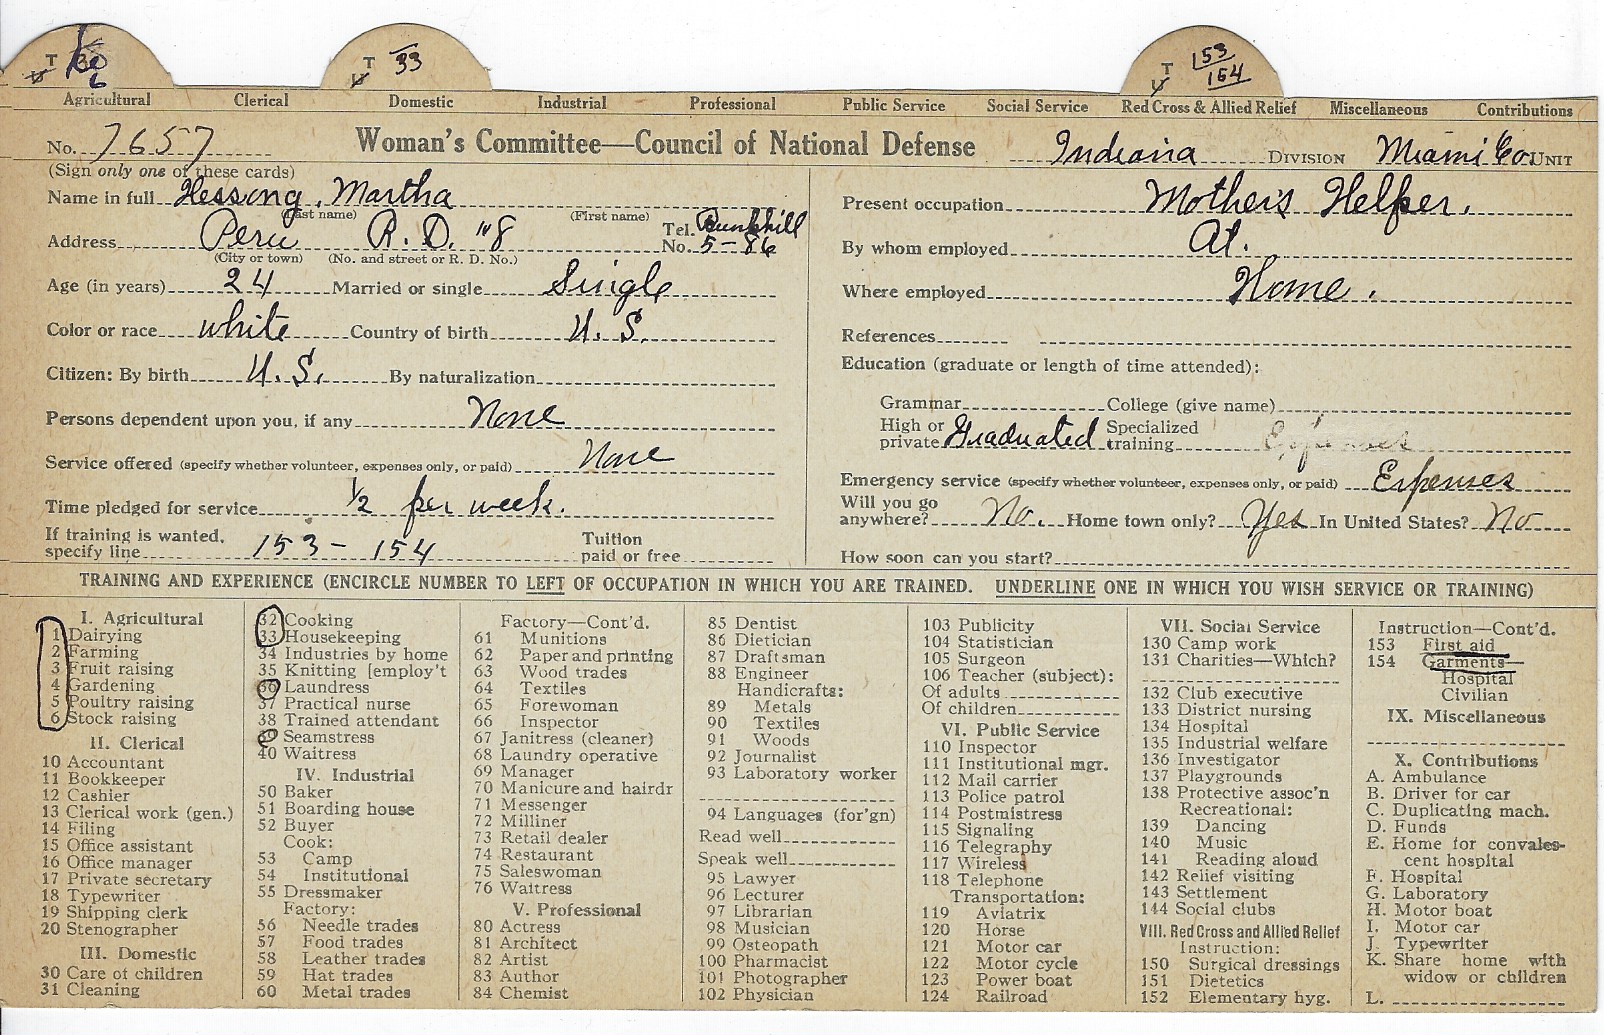 T 6 T 33 T 153
U U 154
Agricultural Clerical Domestic Industrial Professional Public Service Social Service Red Cross & Allied Relief Miscellaneous Contributions
No. 7657 Woman's Committee—Council of National Defense Indiana DIVISION Miami Co. UNIT
(Sign only one of these cards)
Name in full Hessong, Martha
(Last name) (First name)
Address Peru R. D. "8 Tel. No. Bunkhill 5-86
(City or town) (No. and street or R. D. No.)
Age (in years) 24 Married or single Single
Color or race white Country of birth U. S.
Citizen: By birth U.S. By naturalization
Persons dependent upon you, if any None
Service offered (specify whether volunteer, expenses only, or paid) None
Time pledged for service 1/2 per week.
If training is wanted, Tuition
specify line 153 - 154 paid or free
Present occupation Mother's Helper.
By whom employed At.
Where employed Home.
References
Education (graduate or length of time attended):
Grammar College (give name)
High or Specialized
private Graduated training Expenses
Emergency service (specify whether volunteer, expenses only, or paid) Expenses
Will you go
anywhere? No. Home town only? Yes In United States? No
How soon can you start?
TRAINING AND EXPERIENCE (ENCIRCLE NUMBER TO LEFT OF OCCUPATION IN WHICH YOU ARE TRAINED. UNDERLINE ONE IN WHICH YOU WISH SERVICE OR TRAINING)
I. Agricultural
1 Dairying
2 Farming
3 Fruit raising
4 Gardening
5 Poultry raising
6 Stock raising
II. Clerical
10 Accountant
11 Bookkeeper
12 Cashier
13 Clerical work (gen.)
14 Filing
15 Office assistant
16 Office manager
17 Private secretary
18 Typewriter
19 Shipping clerk
20 Stenographer
III. Domestic
30 Care of children
31 Cleaning
32 Cooking
33 Housekeeping
34 Industries by home
35 Knitting [employ't
36 Laundress
37 Practical nurse
38 Trained attendant
39 Seamstress
40 Waitress
IV. Industrial
50 Baker
51 Boarding house
52 Buyer
Cook:
53 Camp
54 Institutional
55 Dressmaker
Factory:
56 Needle trades
57 Food trades
58 Leather trades
59 Hat trades
60 Metal trades
Factory—Cont'd.
61 Munitions
62 Paper and printing
63 Wood trades
64 Textiles
65 Forewoman
66 Inspector
67 Janitress (cleaner)
68 Laundry operative
69 Manager
70 Manicure and hairdr
71 Messenger
72 Milliner
73 Retail dealer
74 Restaurant
75 Saleswoman
76 Waitress
V. Professional
80 Actress
81 Architect
82 Artist
83 Author
84 Chemist
85 Dentist
86 Dietician
87 Draftsman
88 Engineer
Handicrafts:
89 Metals
90 Textiles
91 Woods
92 Journalist
93 Laboratory worker
94 Languages (for'gn)
Read well
Speak well
95 Lawyer
96 Lecturer
97 Librarian
98 Musician
99 Osteopath
100 Pharmacist
101 Photographer
102 Physician
103 Publicity
104 Statistician
105 Surgeon
106 Teacher (subject):
Of adults
Of children
VI. Public Service
110 Inspector
111 Institutional mgr.
112 Mail carrier
113 Police patrol
114 Postmistress
115 Signaling
116 Telegraphy
117 Wireless
118 Telephone
Transportation:
119 Aviatrix
120 Horse
121 Motor car
122 Motor cycle
123 Power boat
124 Railroad
VII. Social Service
130 Camp work
131 Charities—Which?
132 Club executive
133 District nursing
134 Hospital
135 Industrial welfare
136 Investigator
137 Playgrounds
138 Protective assoc'n
Recreational:
139 Dancing
140 Music
141 Reading aloud
142 Relief visiting
143 Settlement
144 Social clubs
VIII. Red Cross and Allied Relief
Instruction:
150 Surgical dressings
151 Dietetics
152 Elementary hyg.
Instruction—Cont'd.
153 First aid
154 Garments—
Hospital
Civilian
IX. Miscellaneous
X. Contributions
A. Ambulance
B. Driver for car
C. Duplicating mach.
D. Funds
E. Home for convales-
cent hospital
F. Hospital
G. Laboratory
H. Motor boat
I. Motor car
J. Typewriter
K. Share home with
widow or children
L.